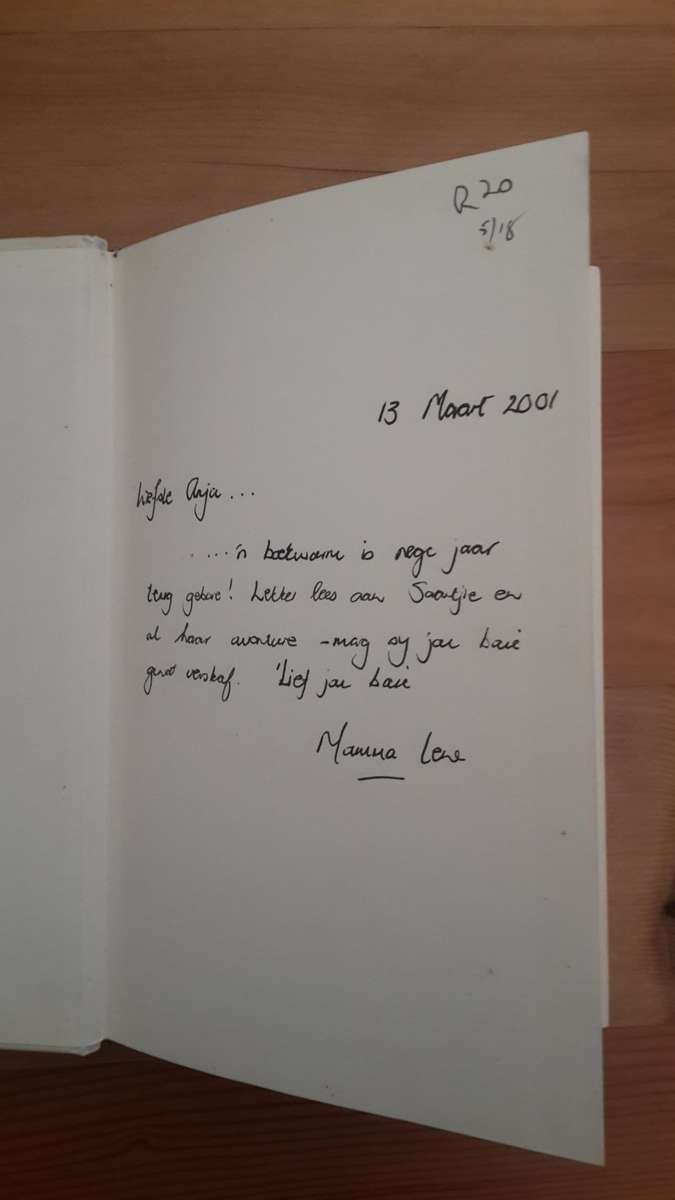 R20
5/18
13 Maart 2001
Liefste Anja...
....'n boekwurm is nege jaar
terug gebore! Lekker lees aan Saartjie en
al haar avonture - mag sy jou baie
genot verskaf. 'Lief jou baie
Mamma Lene